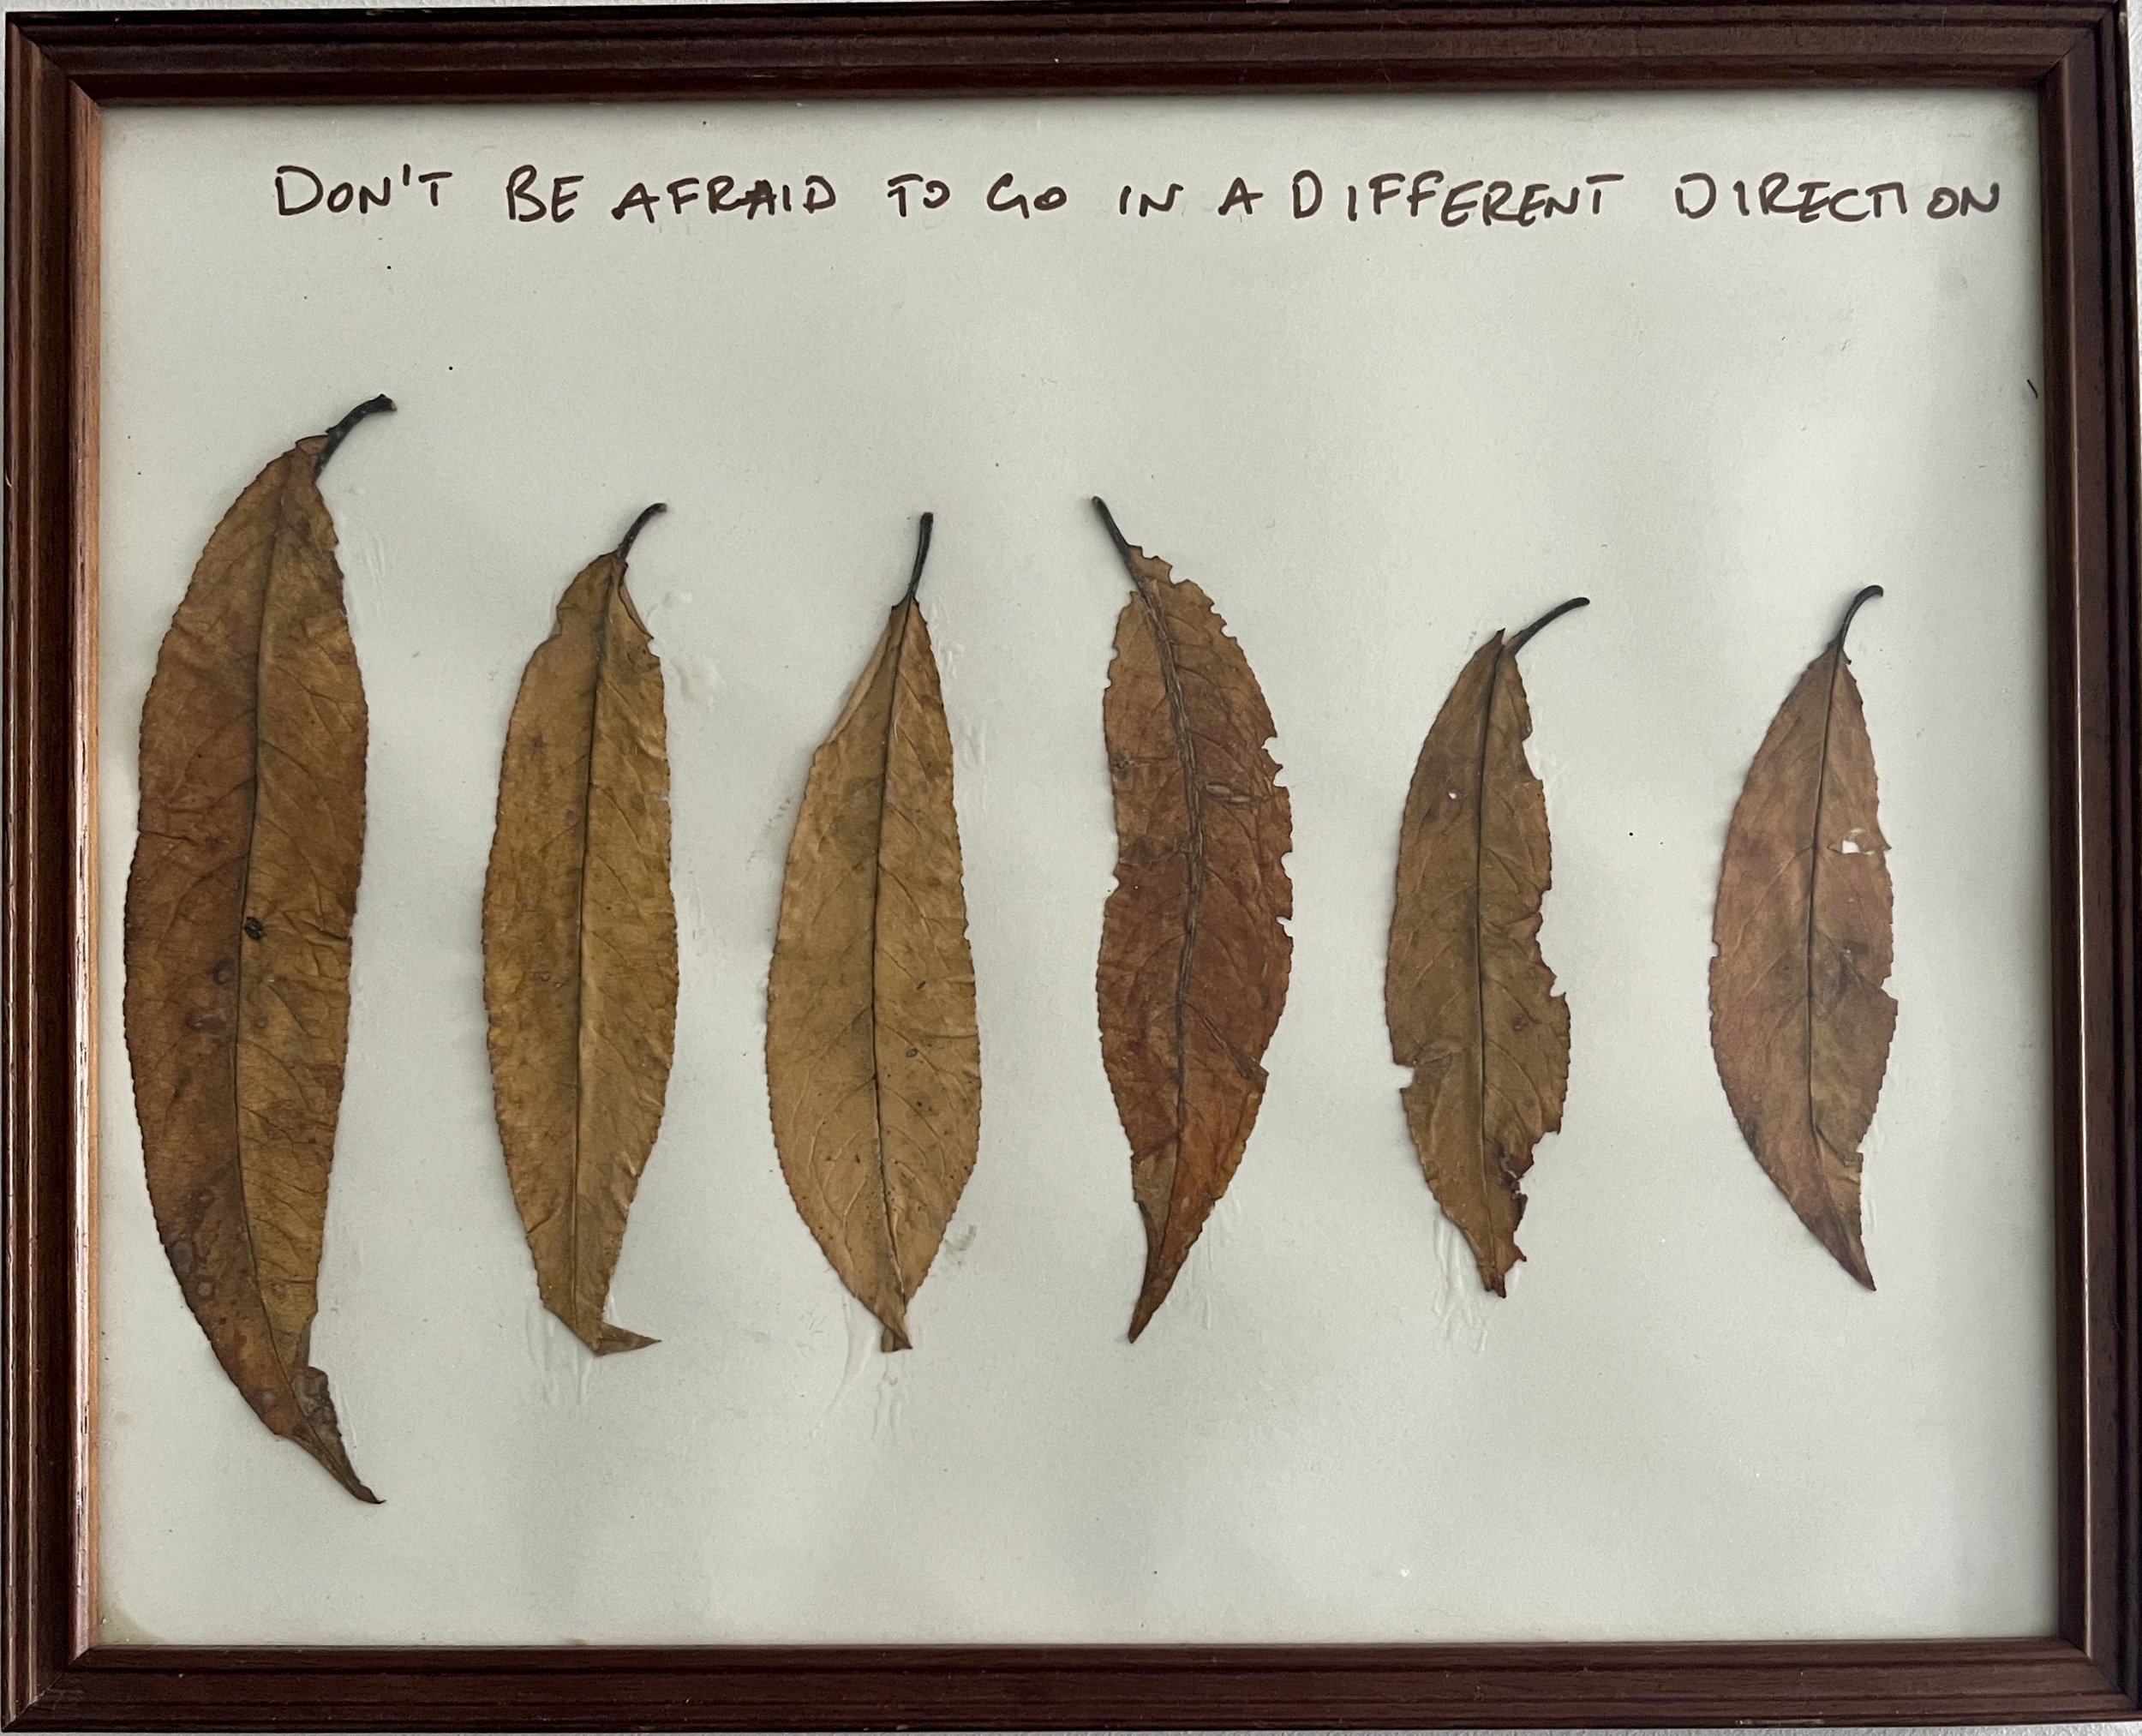 DON'T BE AFRAID TO GO IN A DIFFERENT DIRECTION